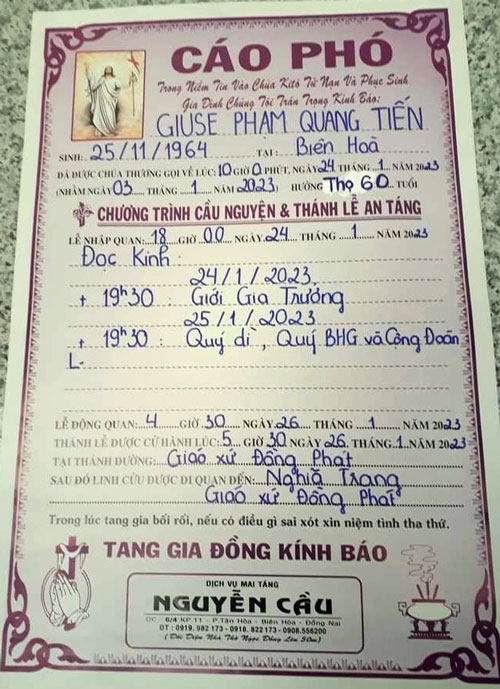 CÁO PHÓ
Trong Niềm Tin Vào Chúa Kitô Tử Nạn Và Phục Sinh
Gia Đình Chúng Tôi Trân Trọng Kính Báo:
GIUSE PHẠM QUANG TIẾN
SINH: 25/11/1964 TẠI: Biên Hoà
ĐÃ ĐƯỢC CHÚA THƯƠNG GỌI VỀ LÚC: 10 GIỜ 0 PHÚT, NGÀY 24 THÁNG 1 NĂM 2023
(NHẰM NGÀY 03 THÁNG 1 NĂM 2023) HƯỞNG Thọ 60 TUỔI
CHƯƠNG TRÌNH CẦU NGUYỆN & THÁNH LỄ AN TÁNG
LỄ NHẬP QUAN: 18 GIỜ 00 NGÀY 24 THÁNG 1 NĂM 2023
Đọc Kinh
24/1/2023
+ 19h30 : Giới Gia Trưởng
25/1/2023
+ 19h30 : Quý dì, Quý BHG và Cộng Đoàn
L-
LỄ ĐỘNG QUAN: 4 GIỜ 30 NGÀY 26 THÁNG 1 NĂM 2023
THÁNH LỄ ĐƯỢC CỬ HÀNH LÚC: 5 GIỜ 30 NGÀY 26 THÁNG 1 NĂM 2023
TẠI THÁNH ĐƯỜNG: Giáo xứ Đồng Phát
SAU ĐÓ LINH CỬU ĐƯỢC DI QUAN ĐẾN: Nghĩa Trang
Giáo xứ Đồng Phát
Trong lúc tang gia bối rối, nếu có điều gì sai xót xin niệm tình tha thứ.
TANG GIA ĐỒNG KÍNH BÁO
DỊCH VỤ MAI TÁNG
NGUYỄN CẦU
ĐC : 6/4 KP.11 - P.Tân Hòa - Biên Hòa - Đồng Nai
ĐT : 0919. 982 173 - 0918. 822 173 - 0908.556200
(Đối Diện Nhà Thờ Ngọc Đồng Lên 50m)